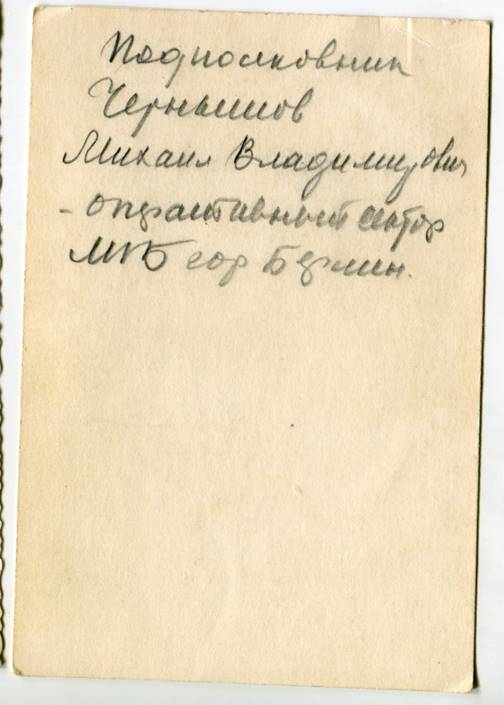 Подполковник
Чернышов
Михаил Владимирович
- оперативный сектор
МГБ гор Берлин.